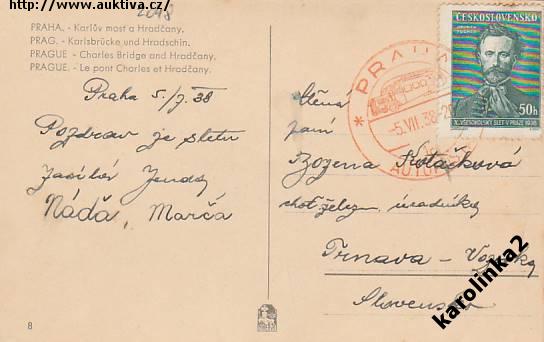 http://www.auktiva.cz/
2048
PRAHA. - Karlův most a Hradčany.
PRAG. - Karlsbrücke und Hradschin.
PRAGUE - Charles Bridge and Hradčany.
PRAGUE. - Le pont Charles et Hradčany.
Praha 5./7. 38
Pozdrav ze sletu
Jenda,
Náďa, Marča
8
ČESKOSLOVENSKO
50h
X. VŠESOKOLSKÝ SLET V PRAZE 1938
* PRAHA
-5.VII.38
Ctěná
paní
Bozena Kotačková
choť želez. úradníka
Trnava -
Slovensko
karolinka2